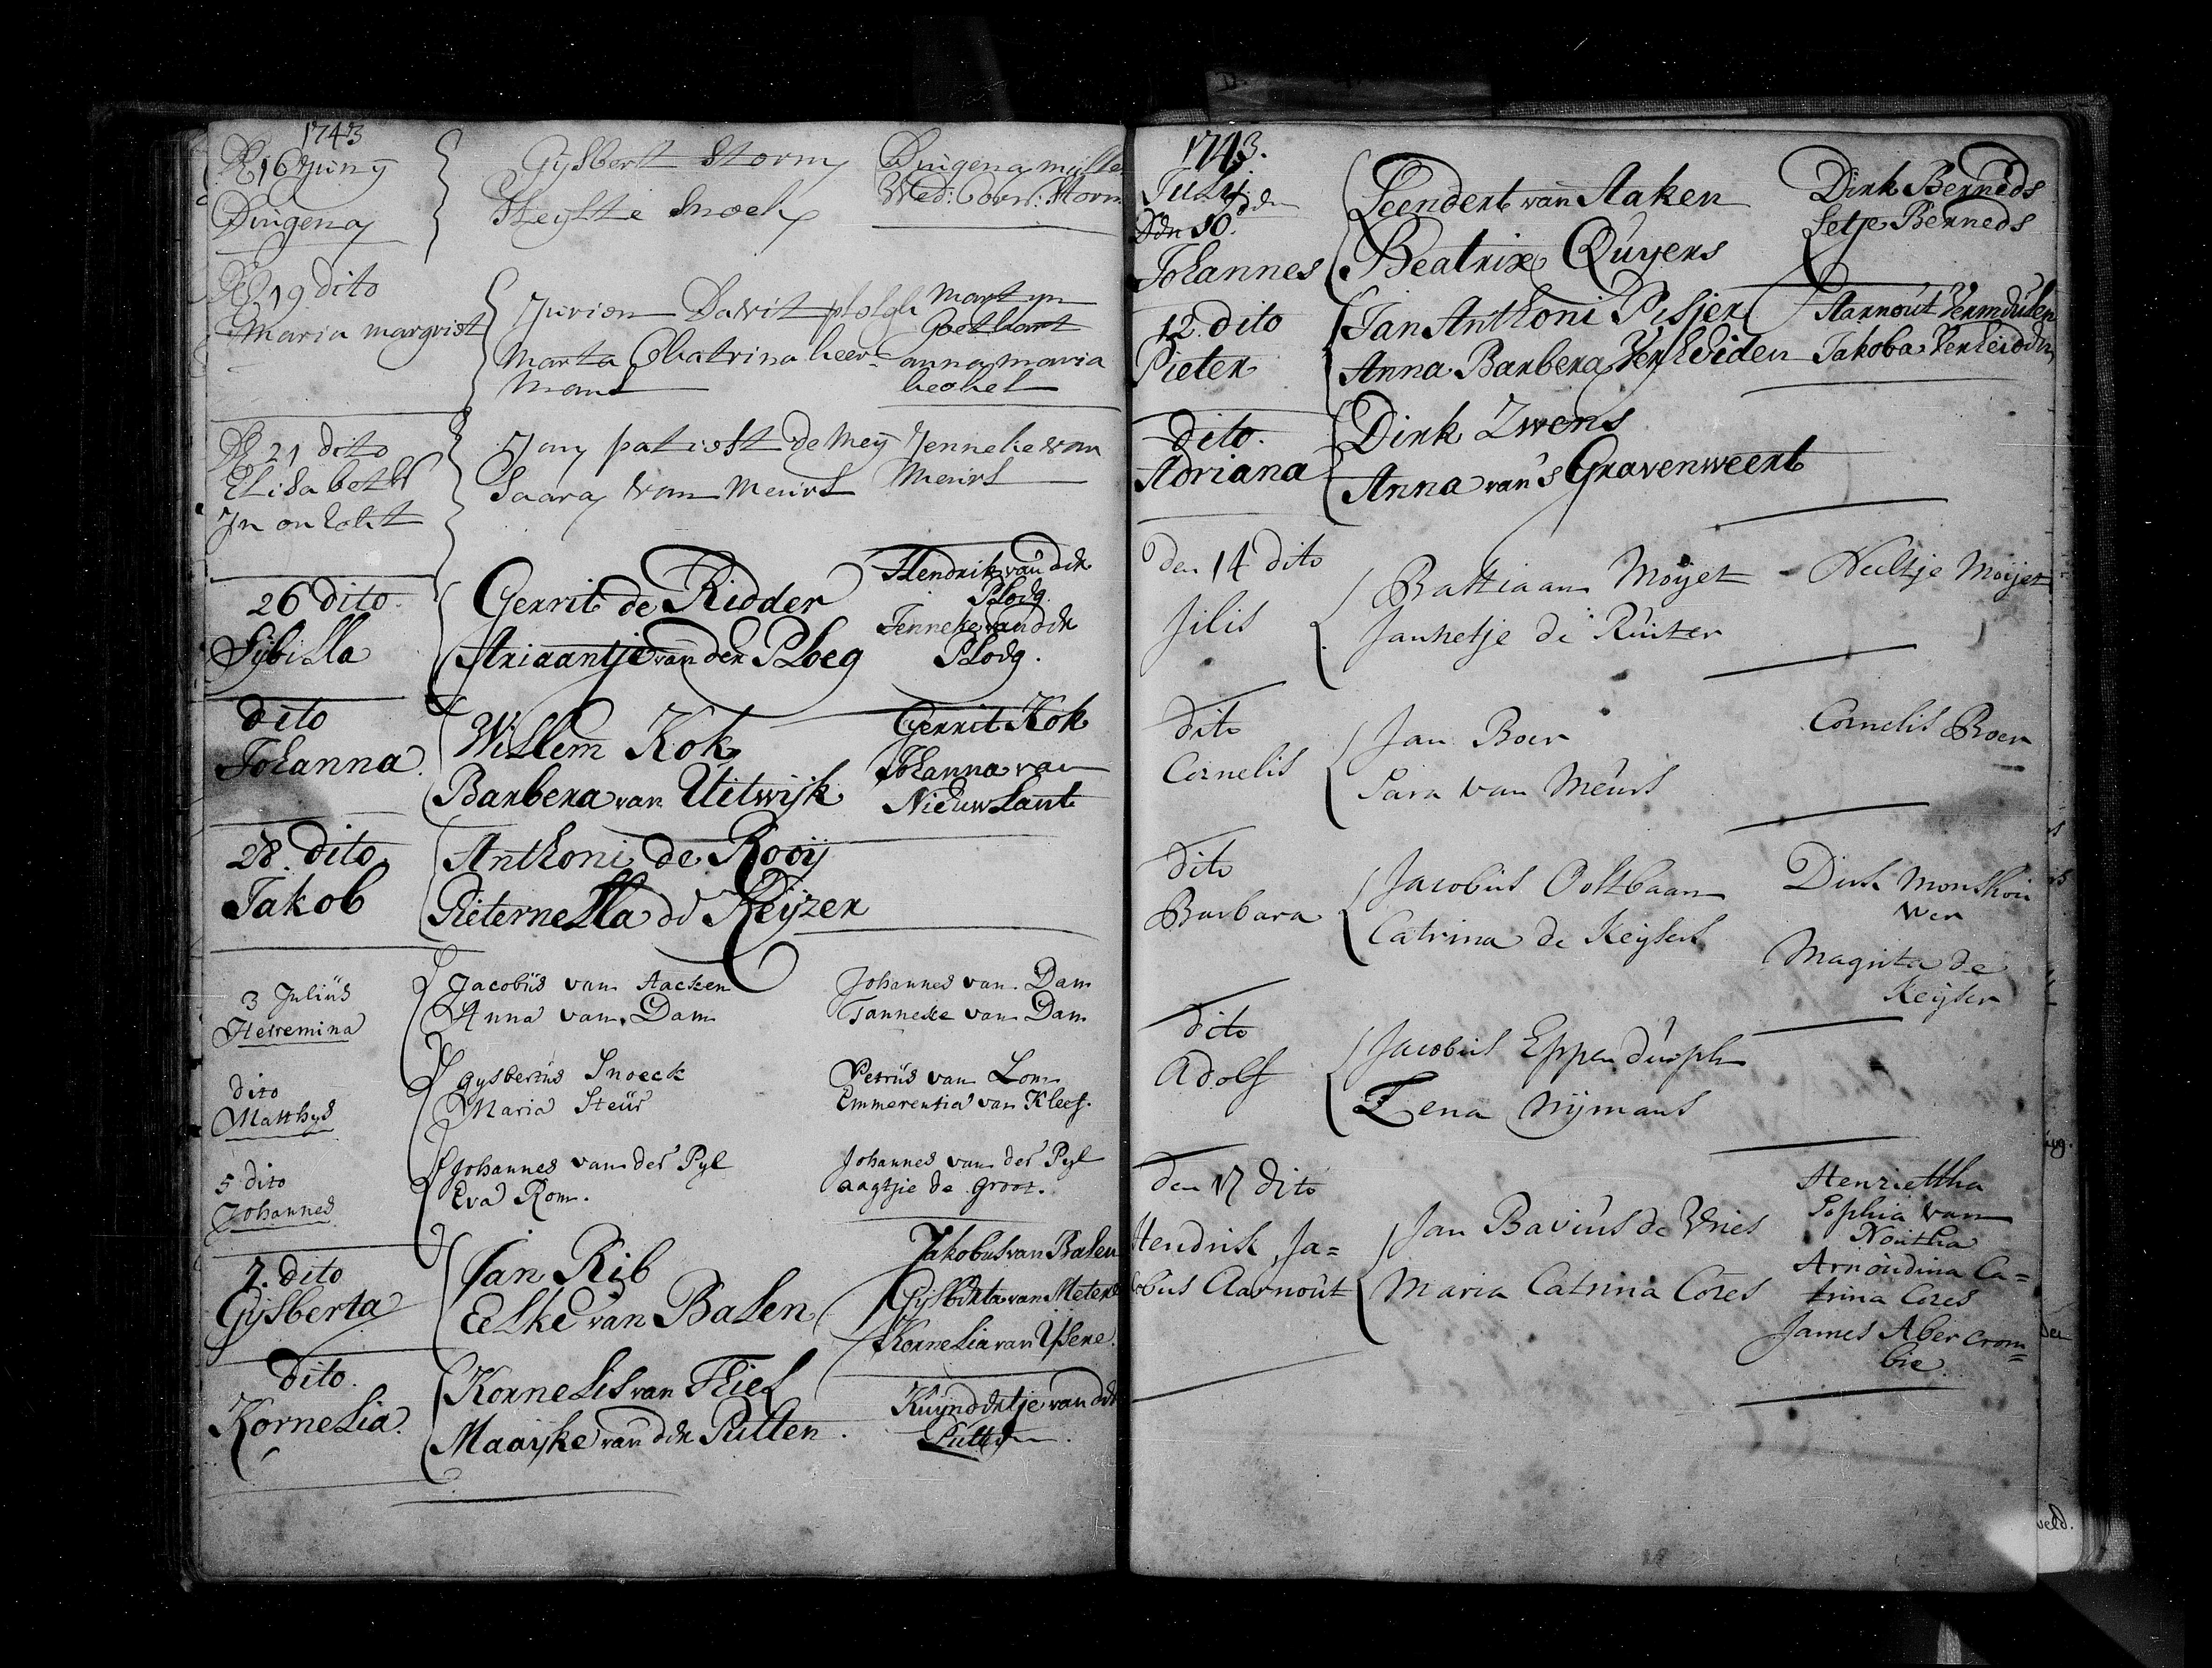 1743
D 16 Juny
Dingena
Gysbert Storm
Heyltie Snoek
Dingena
Wed: Corn: Storm
D 19 dito
Maria margriet
Jurien Davit
Marta Chatrina heer=
mans
martyn
Goethart
anna maria
D 21 dito
Elisabeth
In onEcht
Jan patiost de Meij
Saara van Meurs
Jenneke van
Meurs
26 dito.
Sijbilla
Gerrit de Ridder
Ariaantje van der Ploeg
Hendrik van der
Ploeg.
Jenneke van der
Ploeg.
dito
Johanna.
Willem Kok
Barbera van Uitwijk
Gerrit Kok
Johanna van
Nieuwlant
28. dito
Jakob
Anthoni de Rooij
Pieternella de Keijzer
3 Julius
Herremina
Jacobus van Aacken
Anna van Dam
Johannes van Dam
Janneke van Dam
dito
Matthys
Gysbertus Snoeck
Maria Steur
Petrus van Lom
Emmerentia van Kleef.
5 dito
Johannes
Johannes van der Pyl
Eva Rom.
Johannes van der Pyl
aagtjie de groot.
7. dito
Gijsberta
Jan Rib
Eelke van Balen
Jakobus van Balen
Gijsberta van Meteren
Kornelia van IJsere.
dito.
Kornelia.
Kornelis van Thiel
Maaijke van der Putten.
Kuijndertje van der
Putten.
1743.
July
Den 10.den
Johannes
Leendert van Aaken
Beatrix Quyers
Dirk Berneds
Setje Berneds
12. dito
Pieter
Jan Anthoni Pisjer
Anna Barbera Verheiden
Aarnout Vermeulen
Jakoba Verheiden
dito.
Adriana
Dirk Zwens
Anna van 's Gravenweert
Den 14 dito
Jilis
Bastiaan Moijet
Jannetje de Ruiter
Neeltje Moijet
dito
Cornelis
Jan Boer
Sara van Meurs
Cornelis Boer
dito
Barbara
Jacobus Oostbaan
Catrina de Keysers
Dirk Monshou
wer
Magrita de
Keyser
dito
Adolf
Jacobus Eppendurph
Lena Nijmans
Den 17 dito
Hendrik, Ja=
cobus Aarnout
Jan Bavius de Vries
Maria Catrina Cores
Henriettha
Sophia van
Noutha
Arnoudina Ca=
trina Cores
James Abercrom=
bie.
veld.